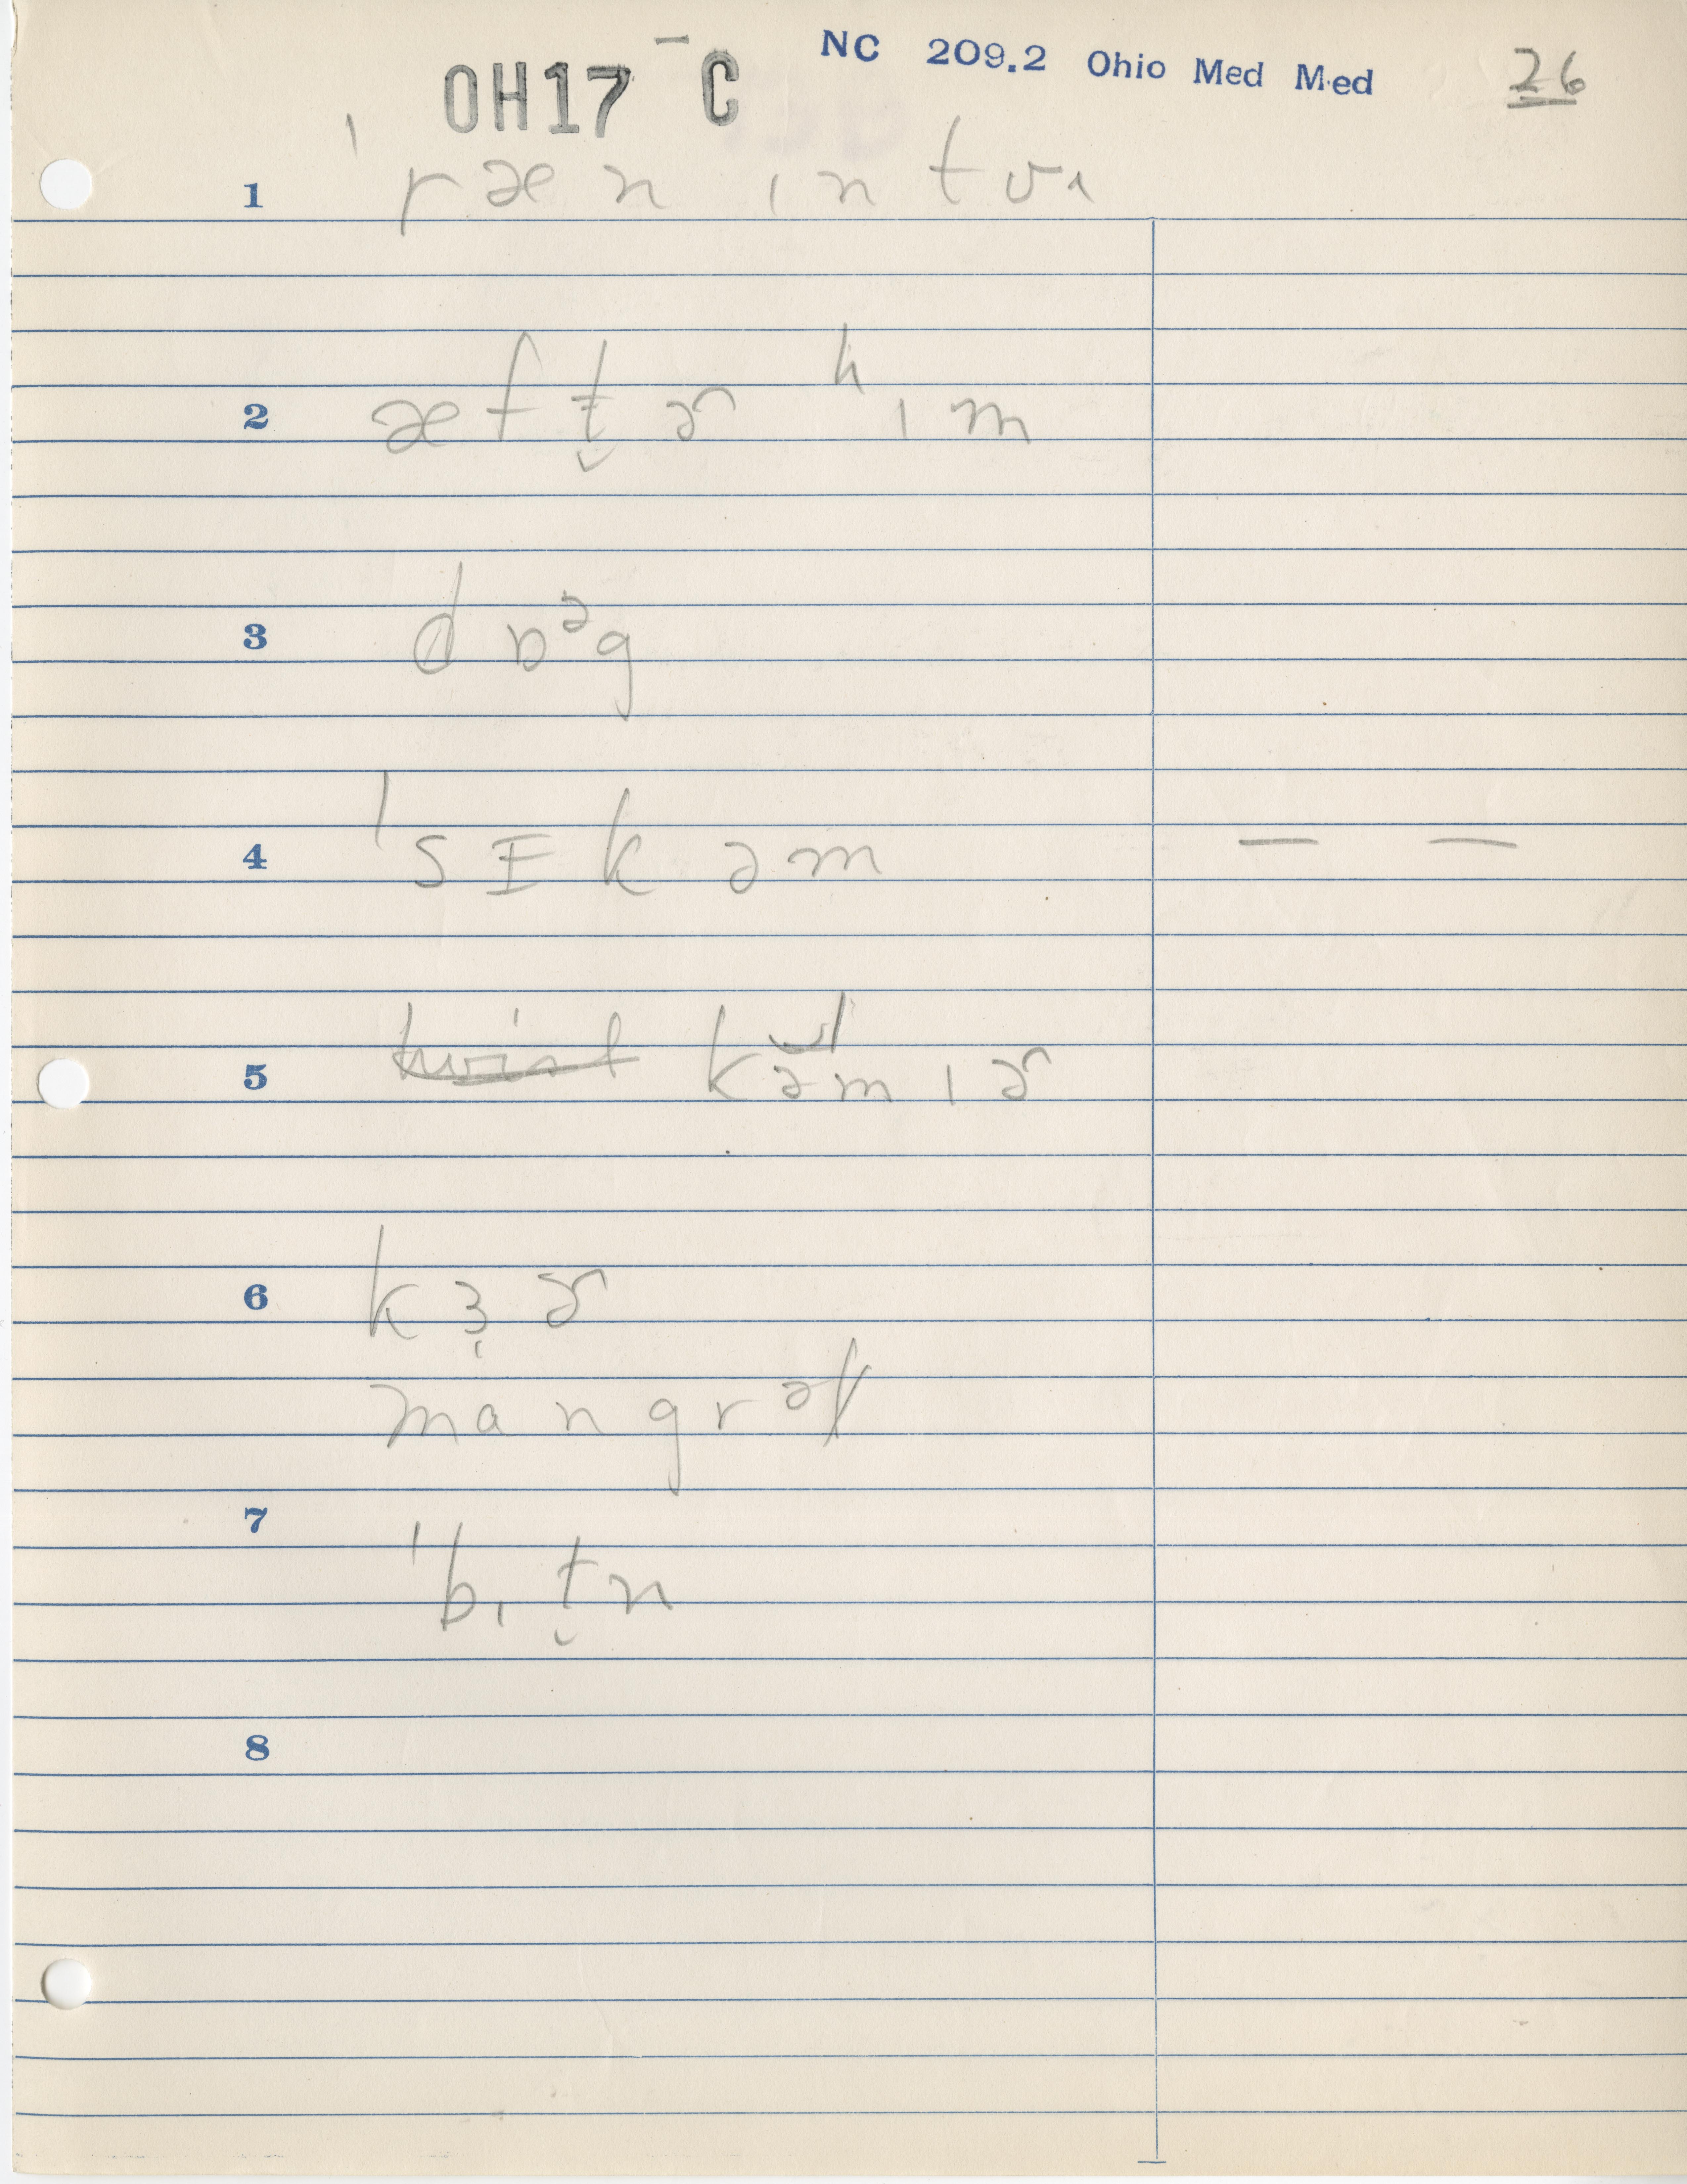 OH17 - C NC 209.2 Ohio Med Med 26
1 ˈræn ɪn tʊɪ
2 æft̬ɚ ʰɪm
3 dɒᵊg
4 ˈsɪkəm — —
5 kəmɪɚ
6 kɜɚ
mɑngrəl
7 ˈbɪt̬n
8